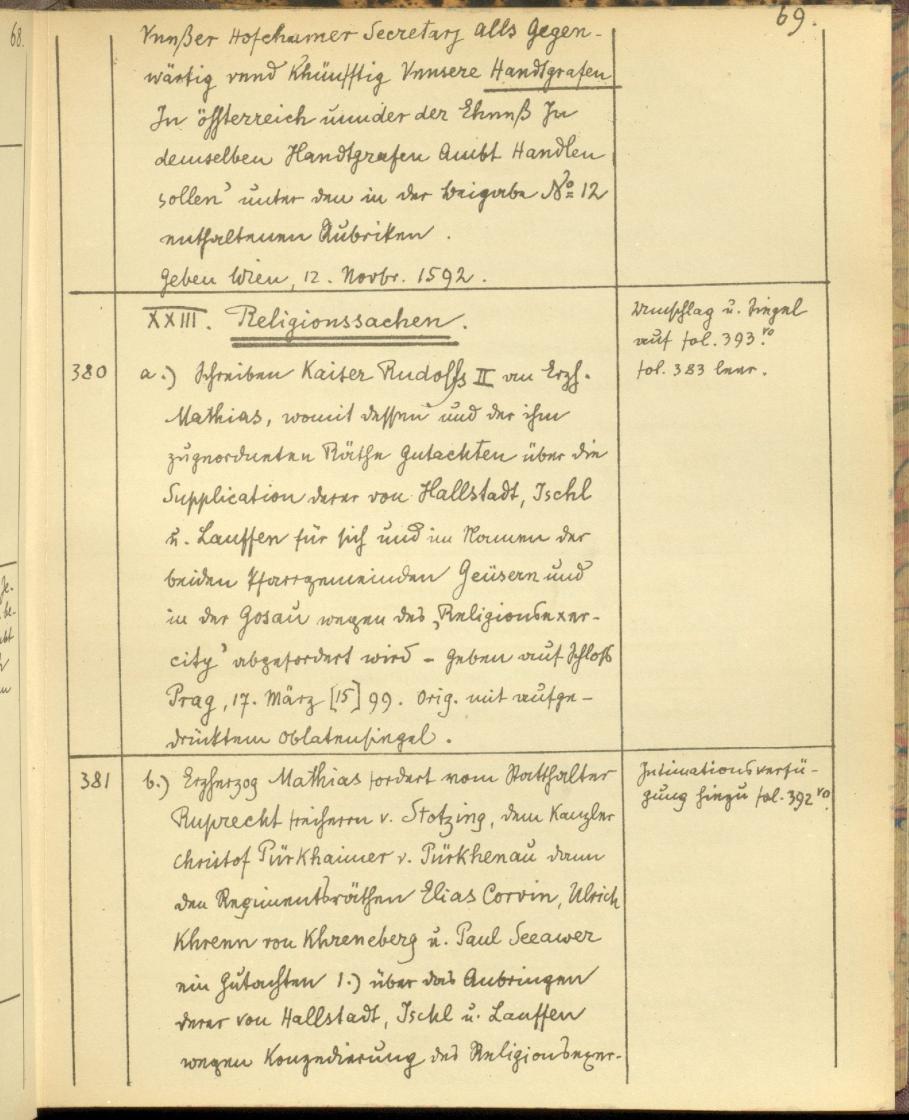 69.
68.
Vnnßer Hofchamer Secretarj alls Gegen-
wärtig vnnd Khünfftig Vnnsere Handtgrafen
In össterreich unnder der Ehnnß In
demselben Handtgrafen Ambt Handlen
sollen' unter den in der Beigabe No 12
enthaltenen Rubriken.
Geben Wien, 12. Novbr. 1592.
XXIII. Religionssachen.
Umschlag u. Siegel
auf fol. 393 vo
fol. 383 leer.
380 a.) Schreiben Kaiser Rudolfs II an Erzh.
Mathias, womit dessen und der ihm
zugeordneten Räthe Gutachten über die
Supplication derer von Hallstadt, Ischl
u. Lauffen für sich und im Namen der
beiden Pfarrgemeinden Geüsern und
in der Gosau wegen des 'Religionsexer-
city' abgefordert wird – Geben auf Schloß
Prag, 17. März [15]99. Orig. mit aufge-
drücktem Oblatensiegel.
381 b.) Erzherzog Mathias fordert vom Statthalter
Ruprecht Freiherrn v. Stotzing, dem Kanzler
Christof Pürkhaimer v. Pürkhenau dann
den Regimentsräthen Elias Corvin, Ulrich
Khrenn von Khreneberg u. Paul Seeawer
ein Gutachten 1.) über das Anbringen
derer von Hallstadt, Ischl u. Lauffen
wegen Konzedierung des Religionsexer-
Intimationsverfü-
gung hiezu fol. 392 vo.